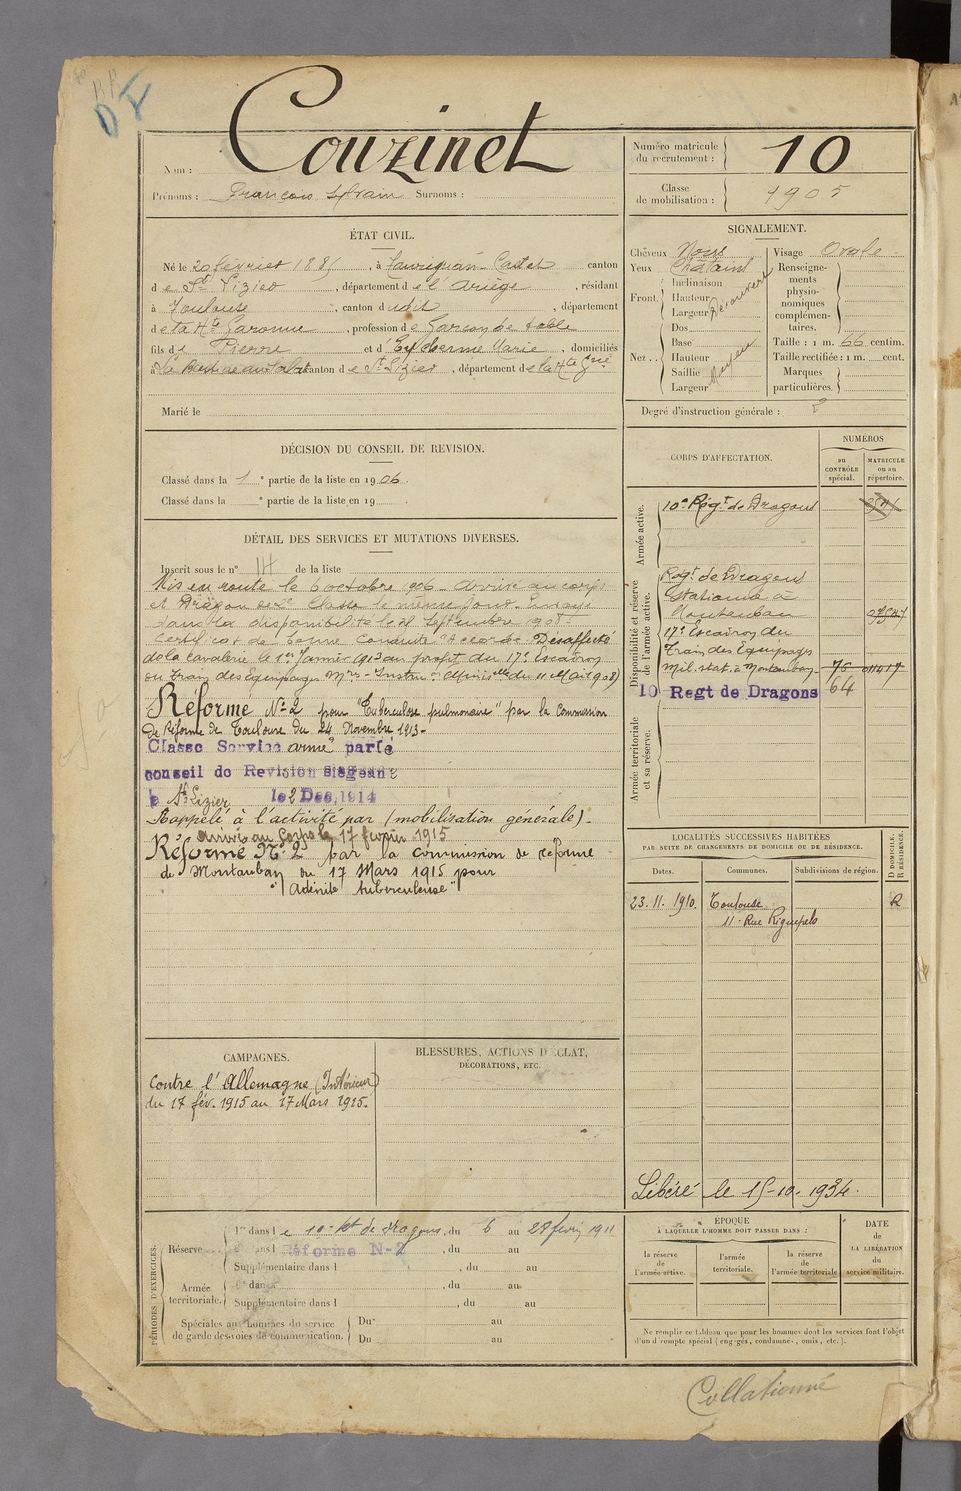 Couzinet
Nom :
Prénoms : François Sylvain Surnoms :
Numéro matricule
du recrutement : 10
Classe
de mobilisation : 1905
ÉTAT CIVIL.
Né le 20 février 1885, à Taurignan-Castet canton
de St Lizier, département de l'Ariège, résidant
à Toulouse, canton dudit, département
de la Hte Garonne, profession de Garçon de table
fils de Pierre et d'Eycherme Marie, domiciliés
à canton de St Lizier, département de la Hte Gne
Marié le
SIGNALEMENT.
Cheveux Noirs Visage Ovale
Yeux Châtains
Front. Inclinaison
Hauteur
Largeur Découvert
Nez.. Dos
Base
Hauteur
Saillie
Largeur Moyen
Renseigne-
ments
physio-
nomiques
complémen-
taires.
Taille : 1 m. 66 centim.
Taille rectifiée : 1 m. cent.
Marques
particulières.
Degré d'instruction générale : 2
DÉCISION DU CONSEIL DE REVISION.
Classé dans la 1e partie de la liste en 1906.
Classé dans la e partie de la liste en 19
DÉTAIL DES SERVICES ET MUTATIONS DIVERSES.
Inscrit sous le n° 14 de la liste
Mis en route le 6 octobre 1906. Arrivé au corps
et Dragon de 2e Classe le même jour. Envoyé
dans la disponibilité le 21 Septembre 1908.
Certificat de bonne Conduite "Accordé" Désaffecté
de la Cavalerie le 1er Janvier 1913 au profit du 17e Escadron
du train des équipages Mres - Instron Ministelle du 11 Mai 1908)
Réformé No 2 pour "Tuberculose pulmonaire" par la Commission
de Réforme de Toulouse du 24 Novembre 1913-
Classé Service armé par le
conseil de Revision siégeant
à St Lizier le 2 Dec. 1914
Rappelé à l'activité par (mobilisation générale).
arrivé au Corps le 17 février 1915
Réformé No 2 par la Commission de réforme
de Montauban du 17 Mars 1915 pour
"Adénite tuberculeuse"
CORPS D'AFFECTATION.
NUMÉROS
au
CONTRÔLE
spécial.
MATRICULE
ou au
répertoire.
Armée active.
10e Régt de Dragons
Disponibilité et réserve
de l'armée active.
Regt de Dragons
Stationné à
Montauban
17e Escadron du
Train des Equipages
Mil. stat. à Montauban 76
10 Regt de Dragons 64
Armée territoriale
et sa réserve.
LOCALITÉS SUCCESSIVES HABITÉES
PAR SUITE DE CHANGEMENTS DE DOMICILE OU DE RÉSIDENCE.
D DOMICILE.
R RÉSIDENCE.
Dates. Communes. Subdivisions de région.
23.11.1910. Toulouse R
11 - Rue Riquepels
Libéré le 15-10-1934.
CAMPAGNES.
Contre l'Allemagne (Intérieur)
du 17 fév. 1915 au 17 Mars 1915.
BLESSURES, ACTIONS D'ÉCLAT,
DÉCORATIONS, ETC.
PÉRIODES D'EXERCICES.
Réserve
1re dans le 10e Rt de dragons, du 6 au 28 fevri 1911
2e dans l Réformé N-2, du au
Supplémentaire dans l, du au
Armée
territoriale.
1re dans l, du au
Supplémentaire dans l, du au
Spéciales aux hommes du service
de garde des voies de communication.
Du au
Du au
ÉPOQUE
À LAQUELLE L'HOMME DOIT PASSER DANS :
la réserve
de
l'armée active.
l'armée
territoriale.
la réserve
de
l'armée territoriale
DATE
de
LA LIBÉRATION
du
service militaire.
Ne remplir ce tableau que pour les hommes dont les services font l'objet
d'un décompte spécial (engagés, condamnés, omis, etc.).
Collationné